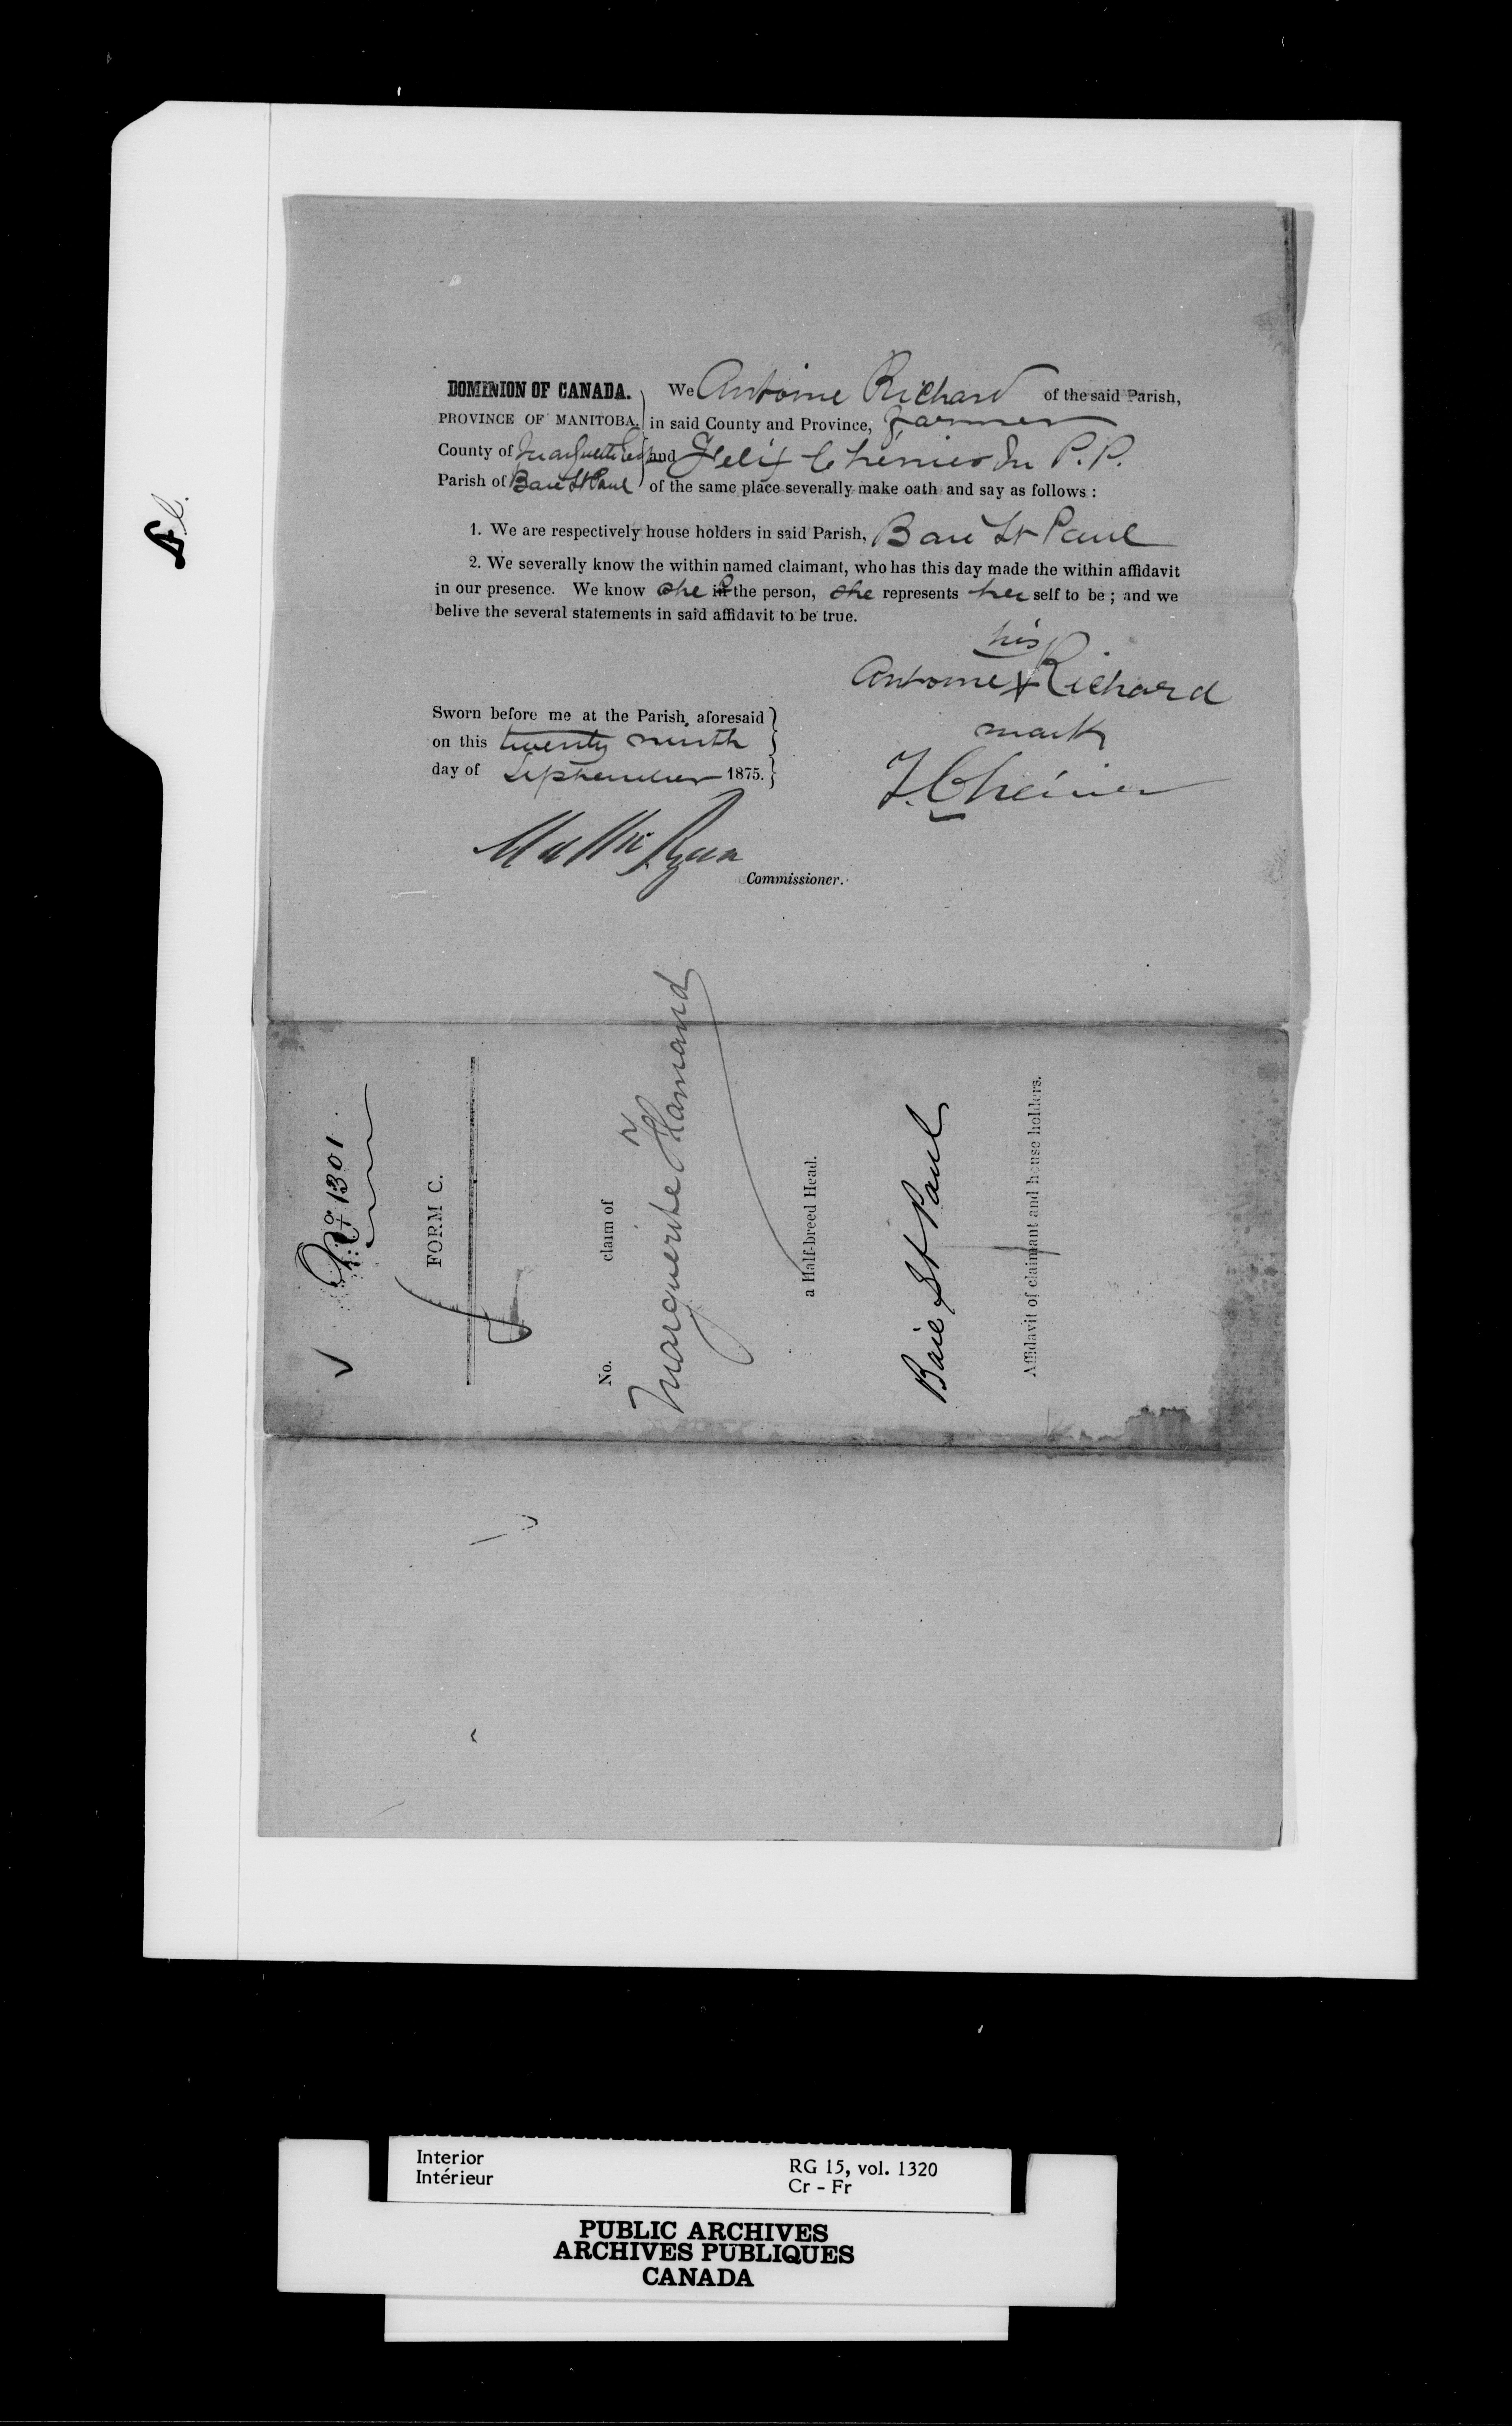 DOMINION OF CANADA.
PROVINCE OF MANITOBA.
County of Marquette
Parish of Baie St Paul
We Antoine Richard of the said Parish,
in said County and Province, farmer
and Felix Chenier P. P.
of the same place severally make oath and say as follows :
1. We are respectively house holders in said Parish, Baie St Paul
2. We severally know the within named claimant, who has this day made the within affidavit
in our presence. We know she is the person, she represents her self to be ; and we
belive the several statements in said affidavit to be true.
his
Antoine X Richard
mark
F. Chénier
Sworn before me at the Parish aforesaid
on this twenty ninth
day of September 1875.
Matthew Ryan
Commissioner.
1301
FORM C.
No. claim of
Marguerite Flamand
a Half-breed Head.
Baie St Paul
Affidavit of claimant and house holders.
Interior
Intérieur
RG 15, vol. 1320
Cr - Fr
PUBLIC ARCHIVES
ARCHIVES PUBLIQUES
CANADA